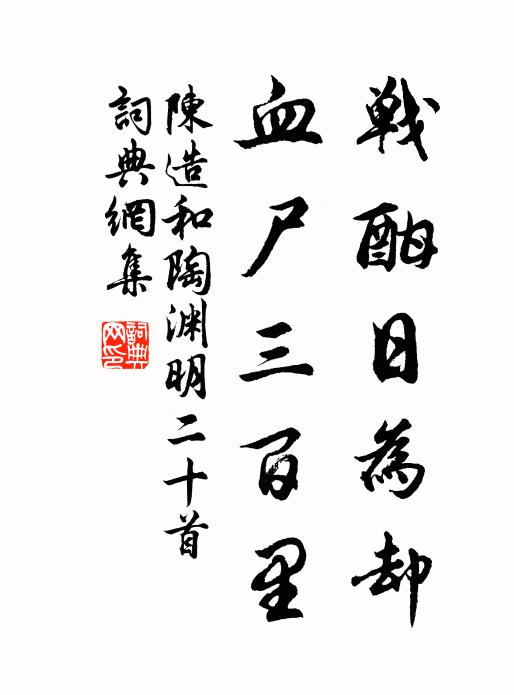 戦酣日為却
血尸三百里
陳造和陶渊明二十首
詞典網集
詞典网印